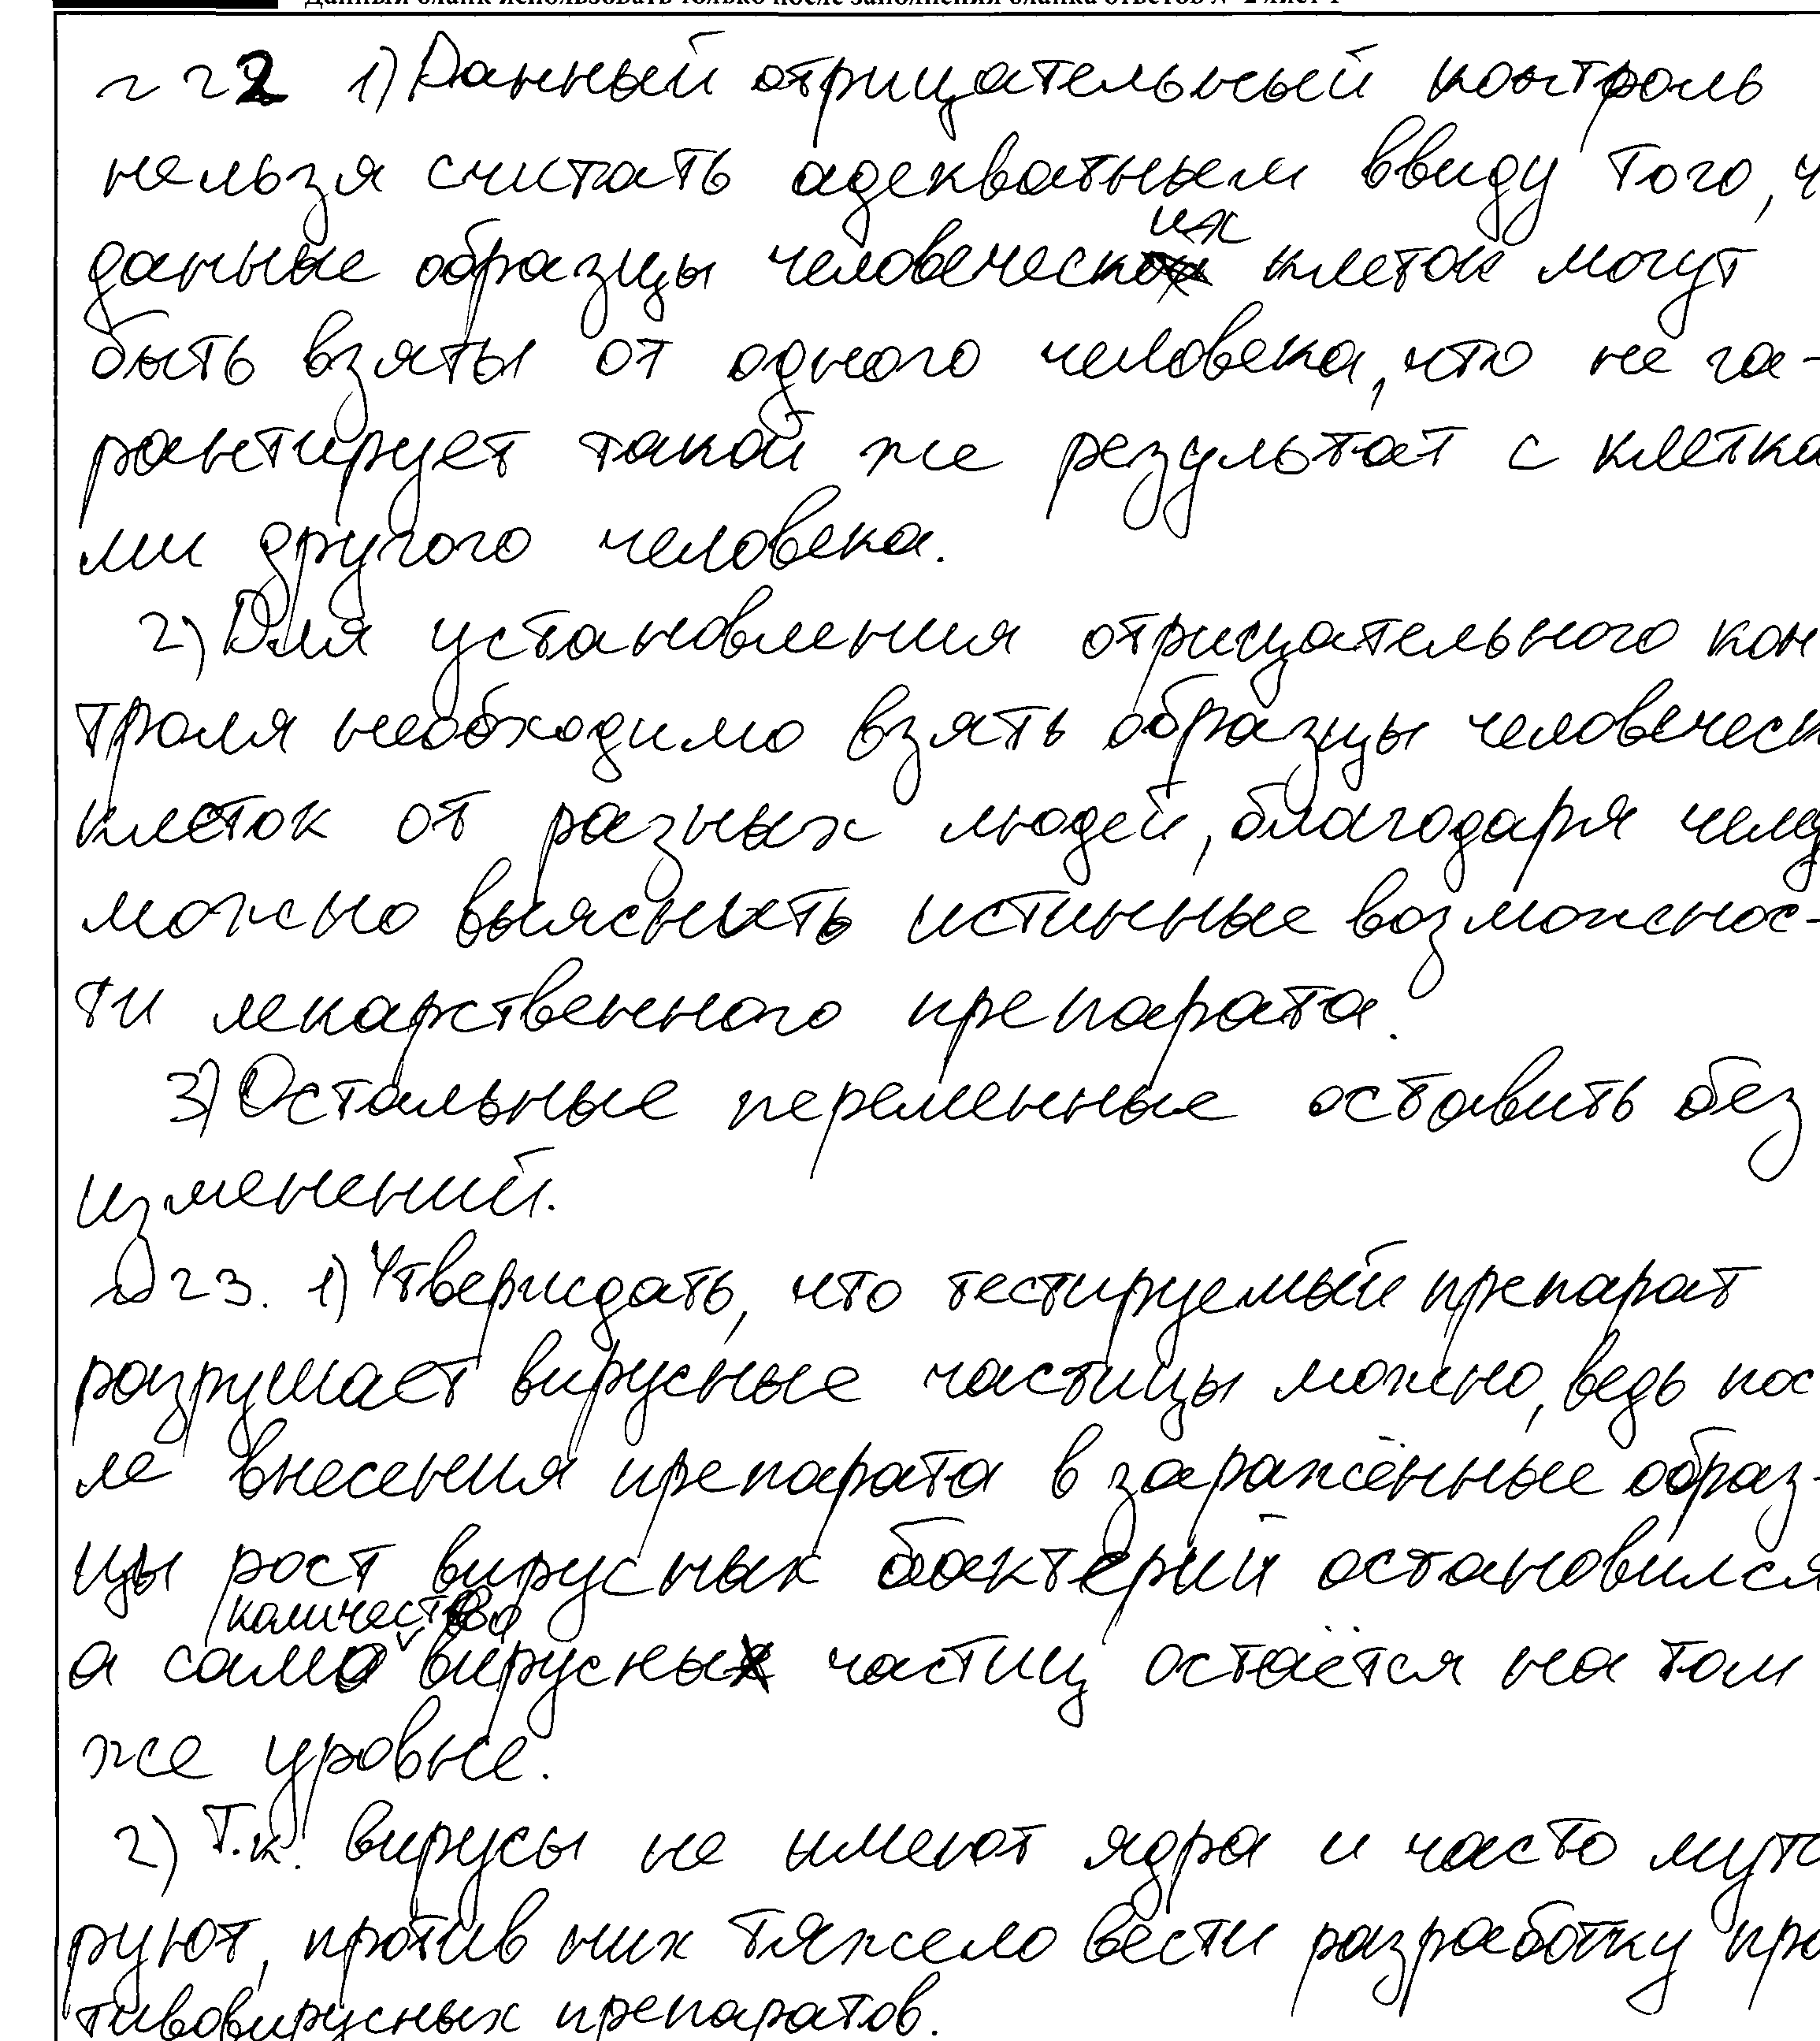 Данный бланк использовать только после заполнения бланка ответов № 2 лист 1
22 1) Данный отрицательный контроль
нельзя считать адекватным ввиду того, ч
данные образцы человеческих клеток могут
быть взяты от одного человека, что не га-
рантирует такой же результат с клетка
ми другого человека.
2) Для установления отрицательного кон
троля необходимо взять образцы человеческ
клеток от разных людей, благодаря чему
можно выяснить истинные возможнос-
ти лекарственного препарата.
3) Остальные переменные оставить без
изменений.
№23. 1) Утверждать, что тестируемый препарат
разрушает вирусные частицы можно, ведь пос
ле внесения препарата в заражённые образ-
цы рост вирусных бактерий остановился
а само количество вирусных частиц остаётся на том
же уровне.
2) Т.к. вирусы не имеют ядра и часто мути
руют, против них тяжело вести разработку про
тивовирусных препаратов.